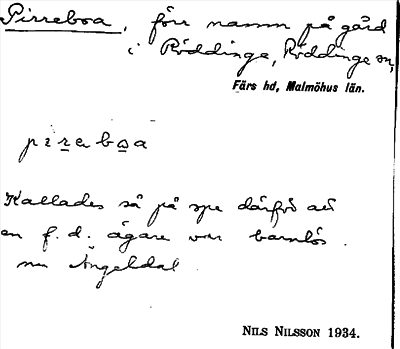 Pirreboa, förr namn på gård
i Röddinge, Röddinge sn,
Färs hd, Malmöhus län.
pireboa
Kallades så på spe därför att
en f.d. ägare var barnlös.
nu Ängeldal.
NILS NILSSON 1934.